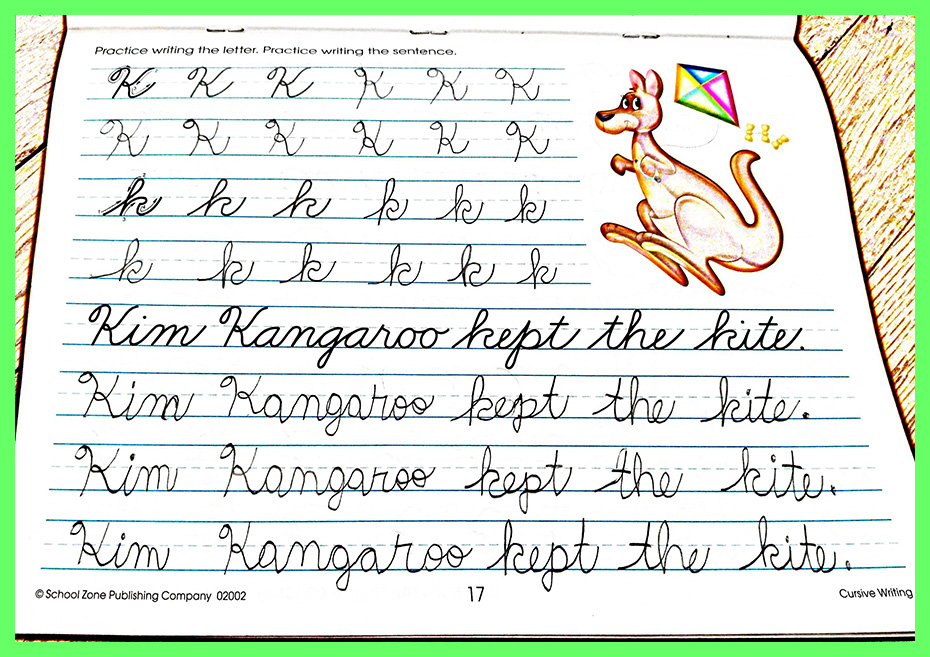 Practice writing the letter. Practice writing the sentence.
K K K K K K
K K K K K K
k k k k k k
k k k k k k
Kim Kangaroo kept the kite.
Kim Kangaroo kept the kite.
Kim Kangaroo kept the kite.
Kim Kangaroo kept the kite.
© School Zone Publishing Company 02002 17 Cursive Writing